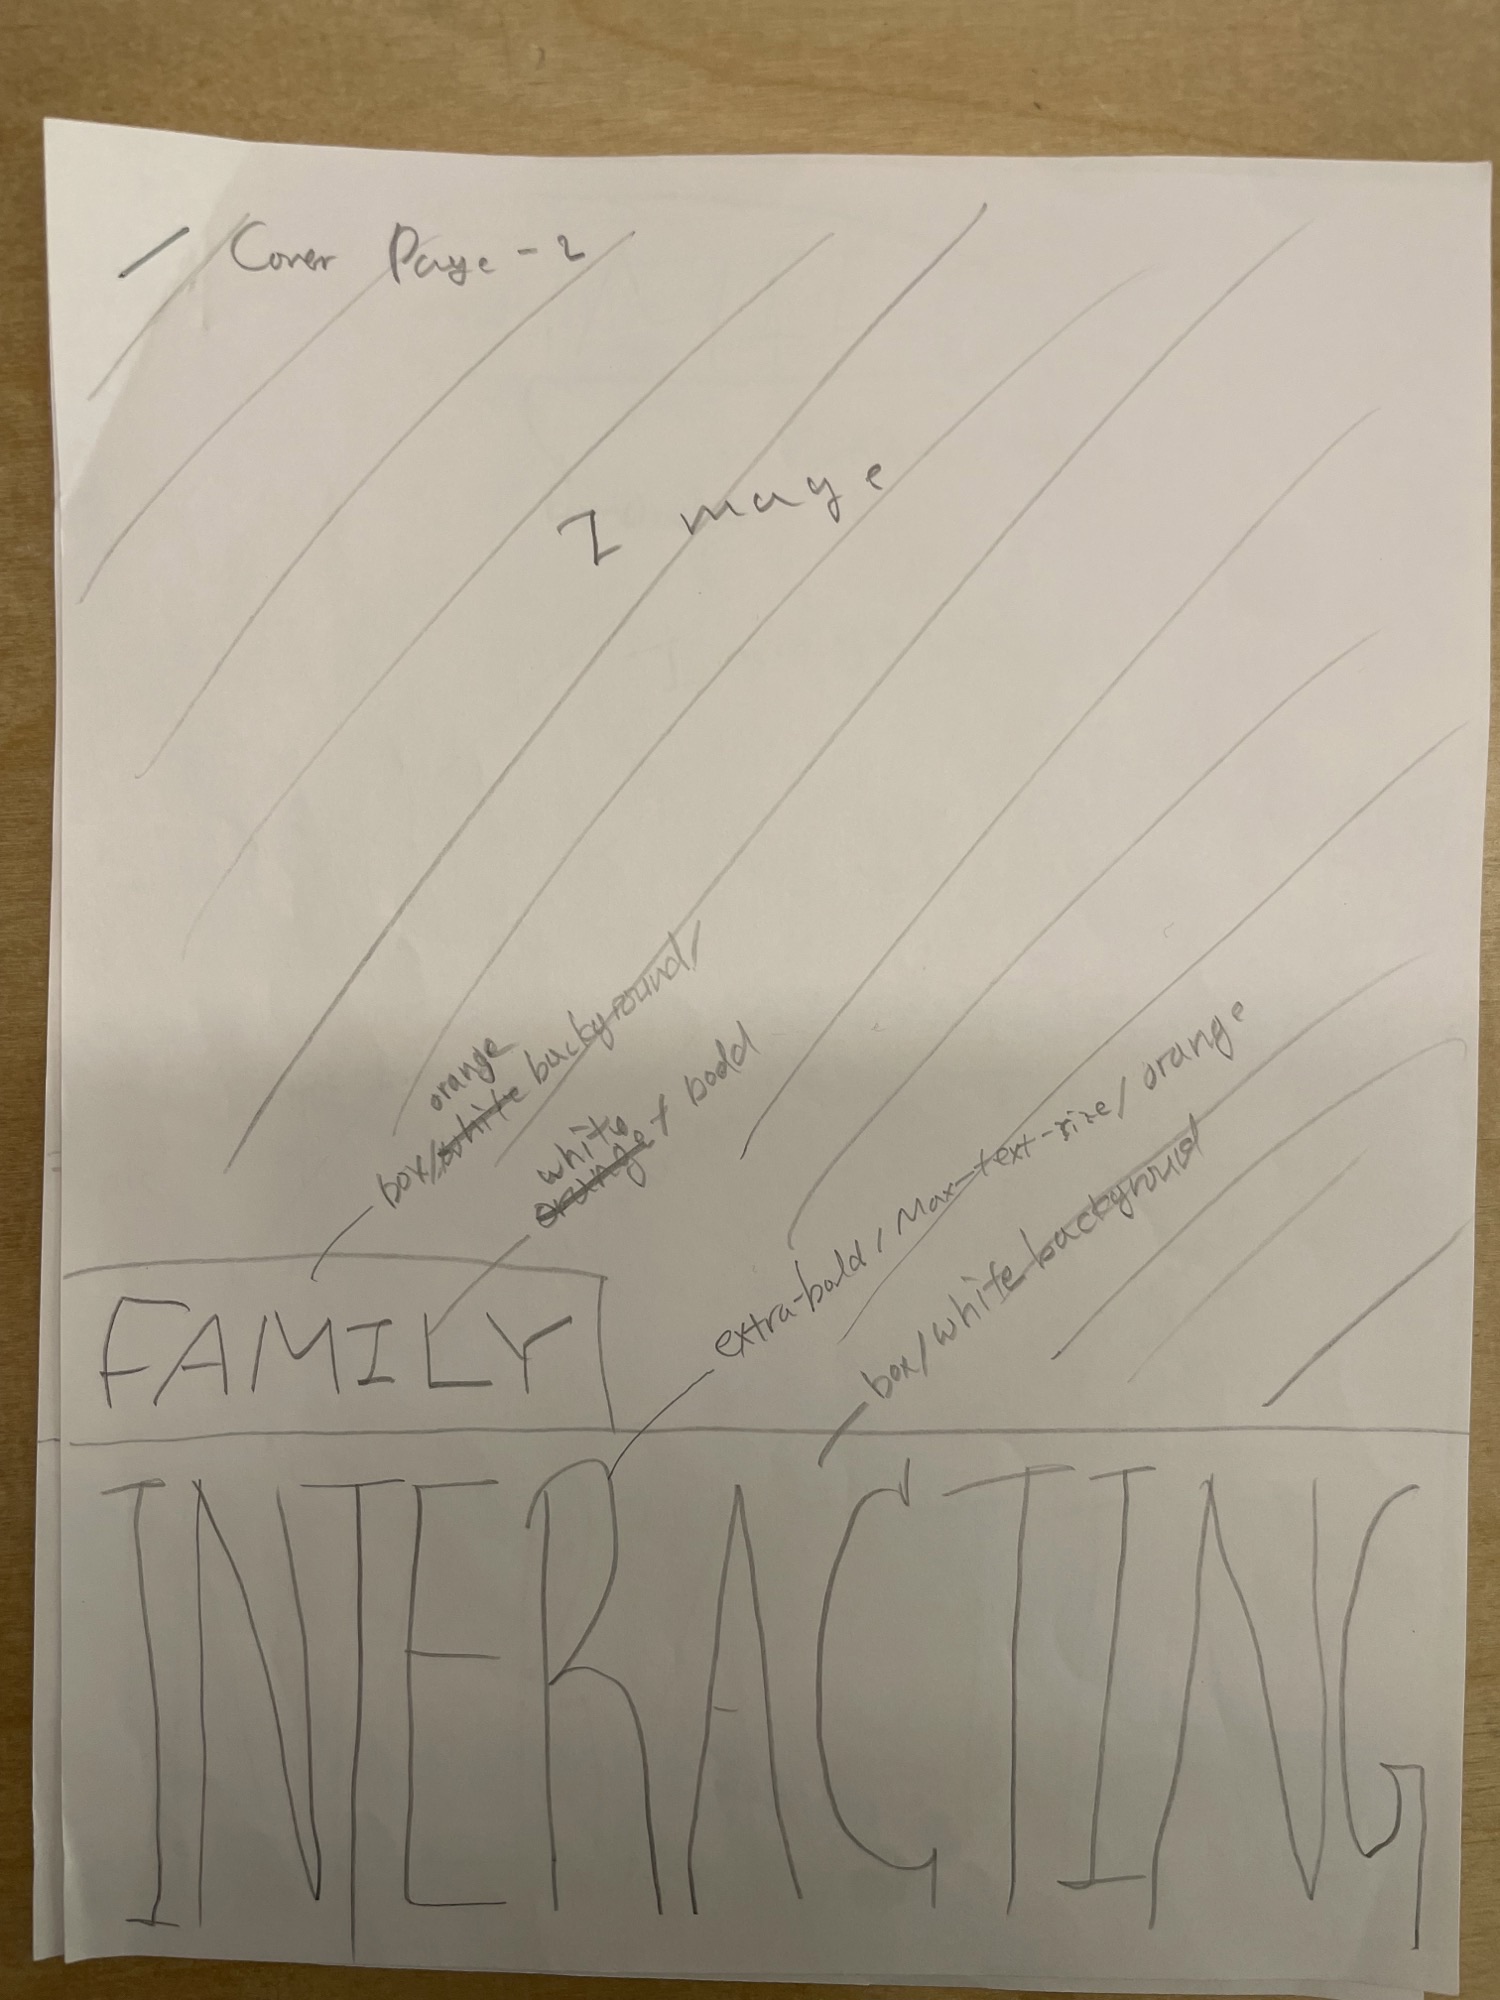 Cover Page - 2
Image
orange
box/white background/
white
orange + bodd
extra-bold / Max-text-size / orange
box/white background
FAMILY
INTERACTING